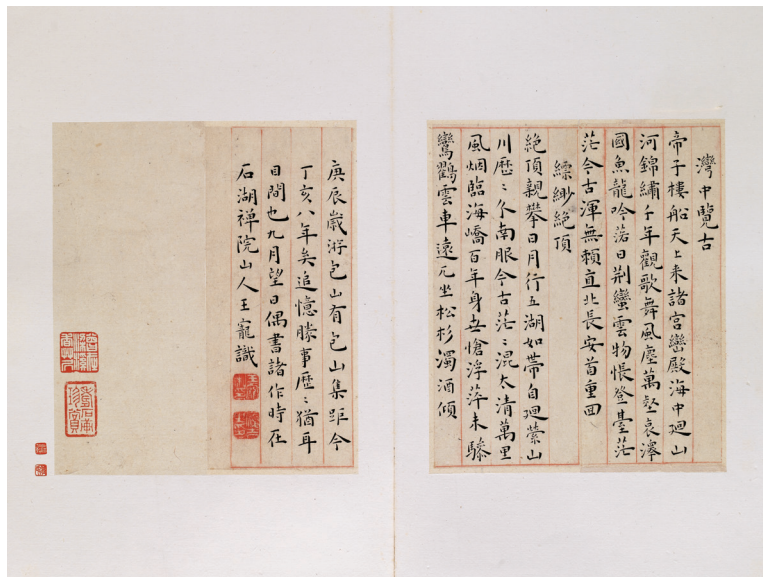 灣中覽古
帝子樓船天上来諸宮巒殿海中廻山
河錦繡千年觀歌舞風塵萬壑哀澤
國魚龍吟落日荆蠻雲物悵登臺茫
茫今古渾無賴直北長安首重回
縹緲絶頂
絶頂親攀日月行五湖如帶自廻縈山
川歷〻分南服今古茫〻混太清萬里
風烟臨海嶠百年身世愴浮萍未驂
鸞鸛雲車遠兀坐松杉濁酒傾
庚辰歲游包山有包山集距今
丁亥八年矣追憶勝事歷〻猶耳
目間也九月望日偶書諸作時在
石湖禅院山人王寵識